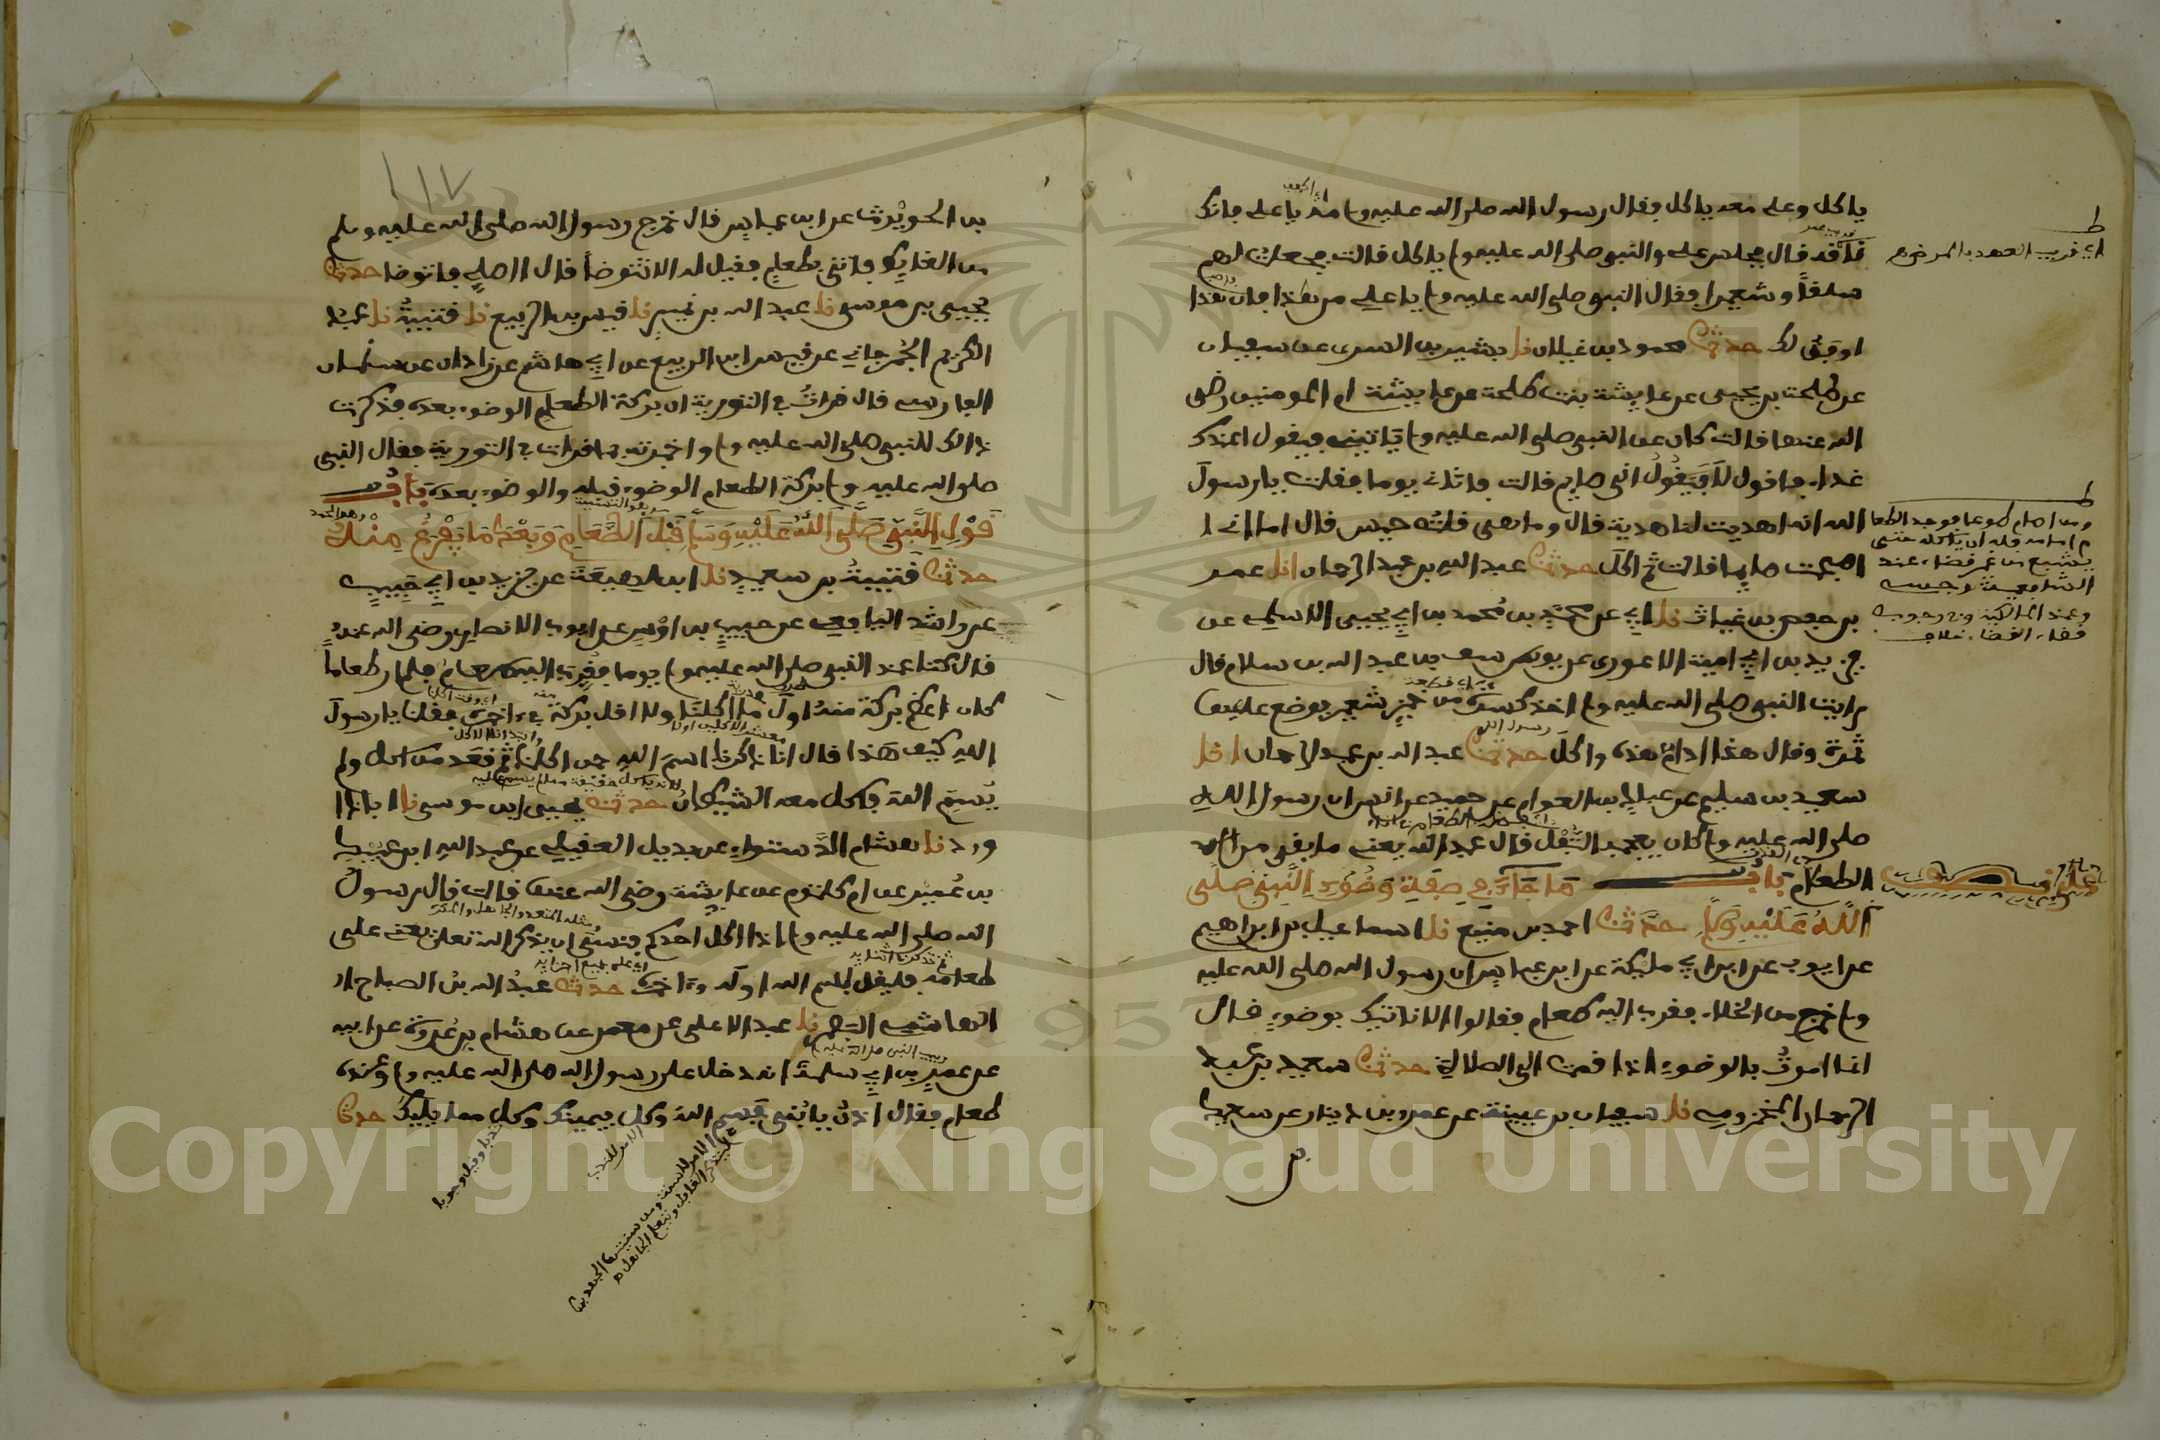 ياكل وعلي معه ياكل فقال رسول الله صلى الله عليه وسلم مه يا علي فانك
ناقه قال فجلس علي والنبي صلى الله عليه وسلم ياكل قالت فجعلت لهم
سلقا وشعيرا فقال النبي صلى الله عليه وسلم يا علي من هذا فان هذا
اوفق لك حدثنا محمود بن غيلان نا بشير بن السرى عن سفيان
عن طلحة بن يحيى عن عايشة بنت طلحة عن عايشة ام المومنين رضى
الله عنها قالت كان النبي صلى الله عليه وسلم ياتيني فيقول اعندك
غداء فاقول لا فيقول اني صايم قالت فاتانى يوما فقلت يا رسول
الله انه اهديت لنا هدية قال وما هى قلت حيس قال اما انى
اصبحت صايما قالت ثم اكل حدثنا عبد الله بن عبد الرحمان انا عمر
بن حفص بن غياث نا ابي عن محمد بن ابي يحيى الاسلمى عن
يزيد بن ابي امية الاعور عن يوسف بن عبد الله بن سلام قال
رايت النبى صلى الله عليه وسلم اخذ كسرة من خبز شعير فوضع عليها
تمرة وقال هذا ادام هذه واكل حدثنا عبد الله بن عبد الرحمان انا
سعيد بن سليم عن عباد بن العوام عن حميد عن انس ان رسول الله
صلى الله عليه وسلم كان يعجبه الثفل قال عبد الله يعنى ما بقى من
الطعام باب ما جاء في صفة وضوء النبي صلى
الله عليه وسلم حدثنا احمد بن منيع نا اسماعيل بن ابراهيم
عن ايوب عن ابن ابي مليكة عن ابن عباس ان رسول الله صلى الله عليه
وسلم خرج من الخلاء فقرب اليه طعام فقالوا الا ناتيك بوضوء قال
انما امرت بالوضوء اذا قمت الى الصلاة حدثنا سعيد بن عبد
الرحمان المخزومى نا سفيان بن عيينة عن عمرو بن دينار عن سعيد
اي قريب العهد بالمرض
١١٧
بن الحويرث عن ابن عباس قال خرج رسول الله صلى الله عليه وسلم
من الغايط فاتى بطعام فقيل له الا تتوضأ قال ااصلي فاتوضا حدثنا
يحيى بن موسى نا عبد الله بن نمير نا قيس بن الربيع نا قتيبة نا عبد
الكريم الجرجاني عن قيس ابن الربيع عن ابي هاشم عن زاذان عن سلمان
الفارسى قال قرات في التورية ان بركة الطعام الوضوء بعده فذكرت
ذالك للنبي صلى الله عليه وسلم واخبرته بما قرات في التورية فقال النبى
صلى الله عليه وسلم بركة الطعام الوضوء قبله والوضوء بعده باب
قول النبي صلى الله عليه وسلم قبل الطعام وبعد ما يفرغ منه
حدثنا قتيبة بن سعيد نا ابن لهيعة عن يزيد بن ابي حبيب
عن راشد اليافعي عن حبيب بن اوس عن ايوب الانصاري رضى الله عنه
قال كنا عند النبي صلى الله عليه وسلم يوما فقرب اليه طعام فلم ار طعاما
كان اعظم بركة منه اول ما اكلنا ولا اقل بركة في اخره فقلنا يا رسول
الله كيف هذا قال انا ذكرنا اسم الله حين اكلنا ثم قعد من اكل ولم
يسم الله فاكل معه الشيطان حدثنا يحيى ابن موسى نا ابو دا
ود نا هشام الدستواي عن بديل العقيلي عن عبد الله ابن عبيد
بن عمير عن ام كلثوم عن عايشة رضى الله عنها قالت قال رسول
الله صلى الله عليه وسلم اذا اكل احدكم فنسى ان يذكر الله تعلى على
طعامه فليقل بسم الله اوله واخره حدثنا عبد الله بن الصباح
الهاشمى البصري نا عبد الاعلى عن معمر عن هشام بن عروة عن ابيه
عن عمر بن ابي سلمة انه دخل على رسول الله صلى الله عليه وسلم وعنده
طعام فقال ادن يا بني فسم الله وكل بيمينك وكل مما يليك حدثنا
Copyright © King Saud University
1957